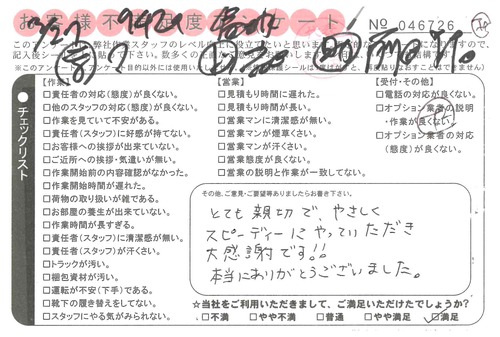 お客様不満足度アンケート
No 046726
チェックリスト
【作業】
□責任者の対応(態度)が良くない。
□他のスタッフの対応(態度)が良くない。
□作業を見ていて不安がある。
□責任者(スタッフ)に好感が持てない。
□お客様への挨拶が出来ていない。
□ご近所への挨拶・気遣いが無い。
□作業開始前の内容確認がなかった。
□作業開始時間が遅れた。
□荷物の取り扱いが雑である。
□お部屋の養生が出来ていない。
□作業時間が長すぎる。
□責任者(スタッフ)に清潔感が無い。
□責任者(スタッフ)が汗くさい。
□トラックが汚い。
□梱包資材が汚い。
□運転が不安(下手)である。
□靴下の履き替えをしてない。
□スタッフにやる気がみられない。
【営業】
□見積もり時間に遅れた。
□見積もり時間が長い。
□営業マンに清潔感が無い。
□営業マンが煙草くさい。
□営業マンが汗くさい。
□営業態度が良くない。
□営業の説明と作業が一致してない。
【受付・その他】
□電話の対応が良くない。
□オプション業者の説明
・作業が良くない。
□オプション業者の対応
(態度)が良くない。
その他、ご意見・ご要望等ありましたらお書き下さい。
とても親切で、やさしく
スピーディーにやっていただき
大感謝です!!
本当にありがとうございました。
☆当社をご利用いただきまして、ご満足いただけたでしょうか?
□不満 □やや不満 □普通 □やや満足 ☑満足